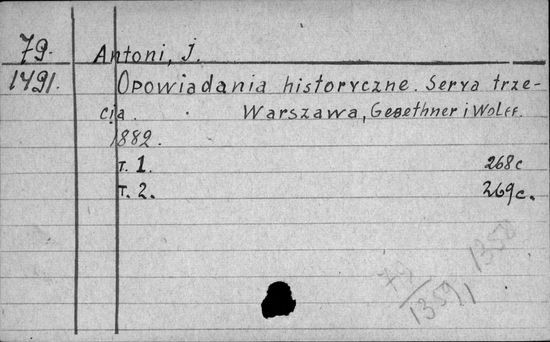 79. Antoni, J.
1491. Opowiadania historyczne. Serya trze-
cia. Warszawa, Gebethner i Wolff.
1882.
T. 1. 268c
T. 2. 269c.
1358
79
1359